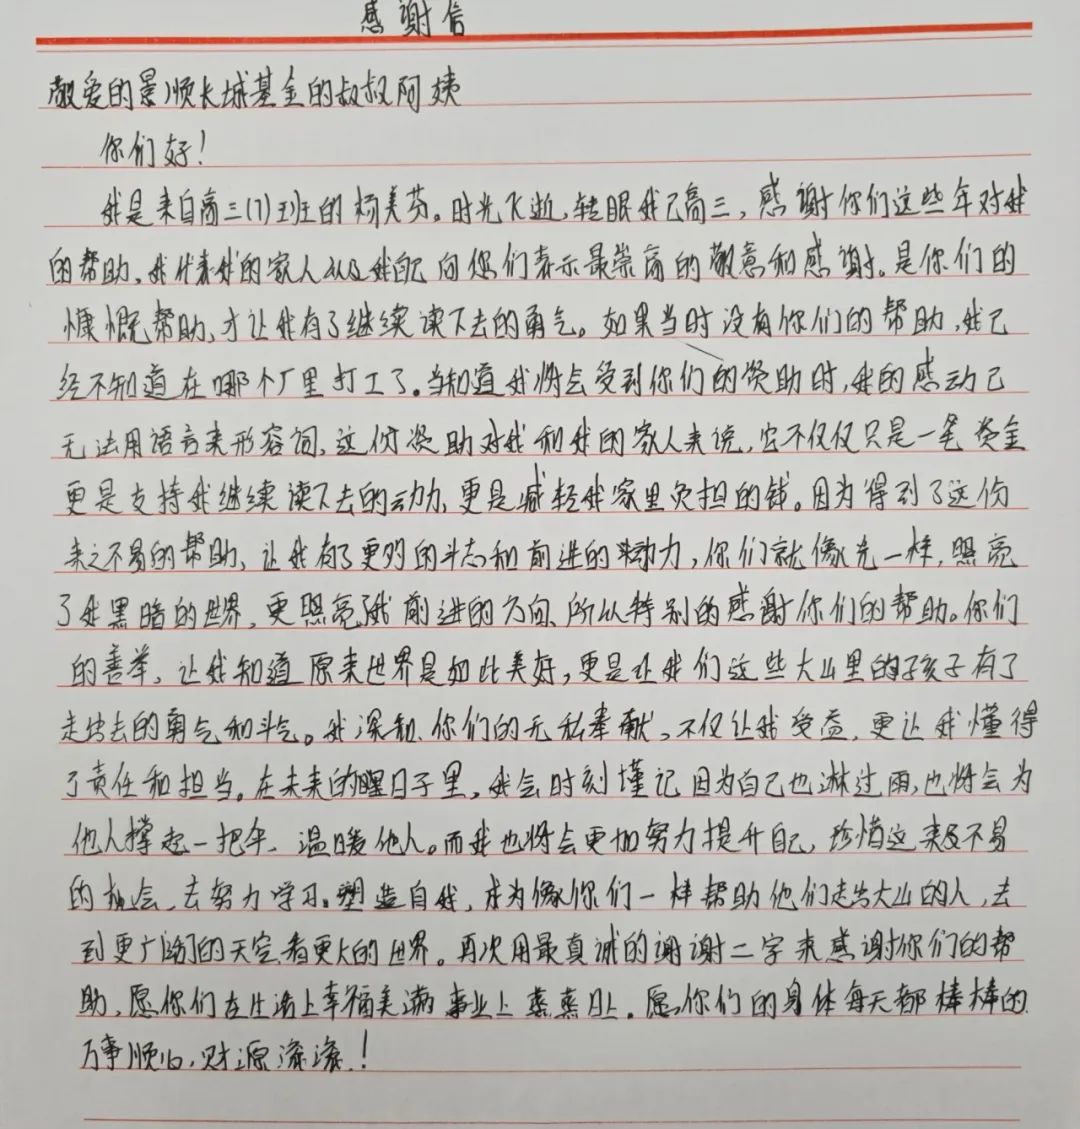 感谢信
敬爱的景顺长城基金的叔叔阿姨
你们好!
我是来自高三(7)班的杨美芬。时光飞逝,转眼我已高三,感谢你们这些年对我
的帮助,我代表我的家人以及我自己向您们表示最崇高的敬意和感谢。是你们的
慷慨帮助,才让我有了继续读下去的勇气。如果当时没有你们的帮助,我已
经不知道在哪个厂里打工了。当知道我将会受到你们的资助时,我的感动已
无法用语言来形容词,这份资助对我和我的家人来说,它不仅仅只是一笔资金
更是支持我继续读下去的动力,更是减轻我家里负担的钱。因为得到了这份
来之不易的帮助,让我有了更多的斗志和前进的动力,你们就像光一样,照亮
了我黑暗的世界,更照亮我前进的方向,所以特别的感谢你们的帮助。你们
的善举,让我知道原来世界是如此美好,更是让我们这些大山里的孩子有了
走出去的勇气和斗气。我深知,你们的无私奉献,不仅让我受益,更让我懂得
了责任和担当。在未来的日子里,我会时刻谨记因为自己也淋过雨,也将会为
他人撑起一把伞,温暖他人。而我也将会更加努力提升自己,珍惜这来及不易
的机会,去努力学习。塑造自我,成为像你们一样帮助他们走出大山的人,去
到更广阔的天空看更大的世界。再次用最真诚的谢谢二字来感谢你们的帮
助,愿你们在生活上幸福美满事业上蒸蒸日上。愿你们的身体每天都棒棒的
万事顺心,财源滚滚!